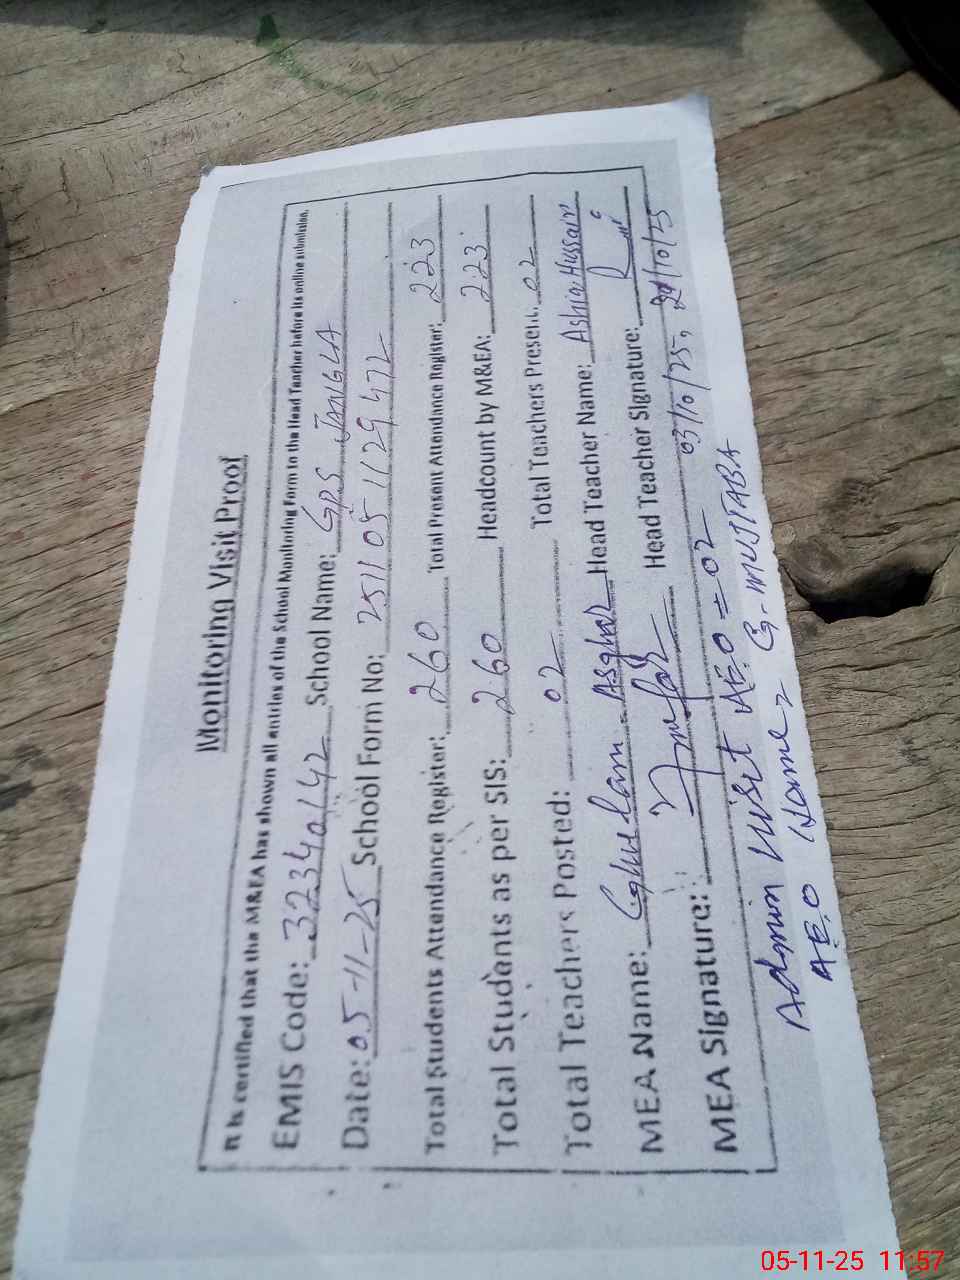 Monitoring Visit Proof
It is certified that the M&EA has shown all entries of the School Monitoring Form to the Head Teacher before its online submission.
EMIS Code: 32340142 School Name: GPS JANGLA
Date: 05-11-25 School Form No: 251105 1129472
Total Students Attendance Register: 260 Total Present Attendance Register: 223
Total Students as per SIS: 260 Headcount by M&EA: 223
Total Teachers Posted: 02 Total Teachers Present: 02
MEA Name: Ghulam Asghar Head Teacher Name: Ashiq Hussain
MEA Signature: Head Teacher Signature:
Admin Visit AEO = 02 03/10/25, 21/10/25
AEO Name = G. MUJTABA
05-11-25 11:57